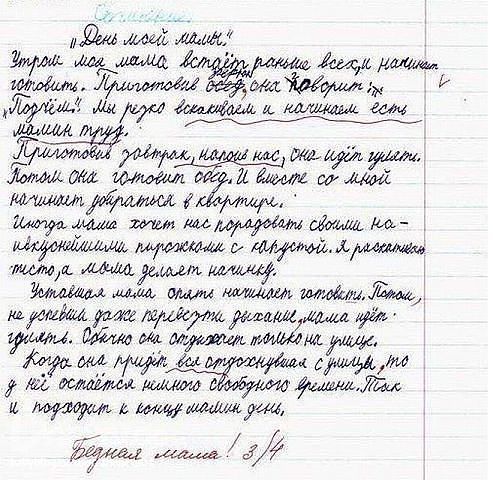 Сочинение.
„День моей мамы."
Утром моя мама встаёт раньше всех, и начинает
готовить. Приготовив завтрак обед, она говорит:
„Подъём". Мы резко вскакиваем и начинаем есть
мамин труд.
Приготовив завтрак, напоив нас, она идёт гулять.
Потом она готовит обед. И вместе со мной
начинает убираться в квартире.
Иногда мама хочет нас порадовать своими на-
ивкуснейшими пирожками с капустой. Я раскатываю
тесто, а мама делает начинку.
Уставшая мама опять начинает готовить. Потом,
не успевши даже перевести дыхание, мама идёт
гулять. Обычно она отдыхает только на улице.
Когда она придёт вся отдохнувшая с улицы, то
у неё остаётся немного свободного времени. Так
и подходит к концу мамин день.
Бедная мама! 3/4